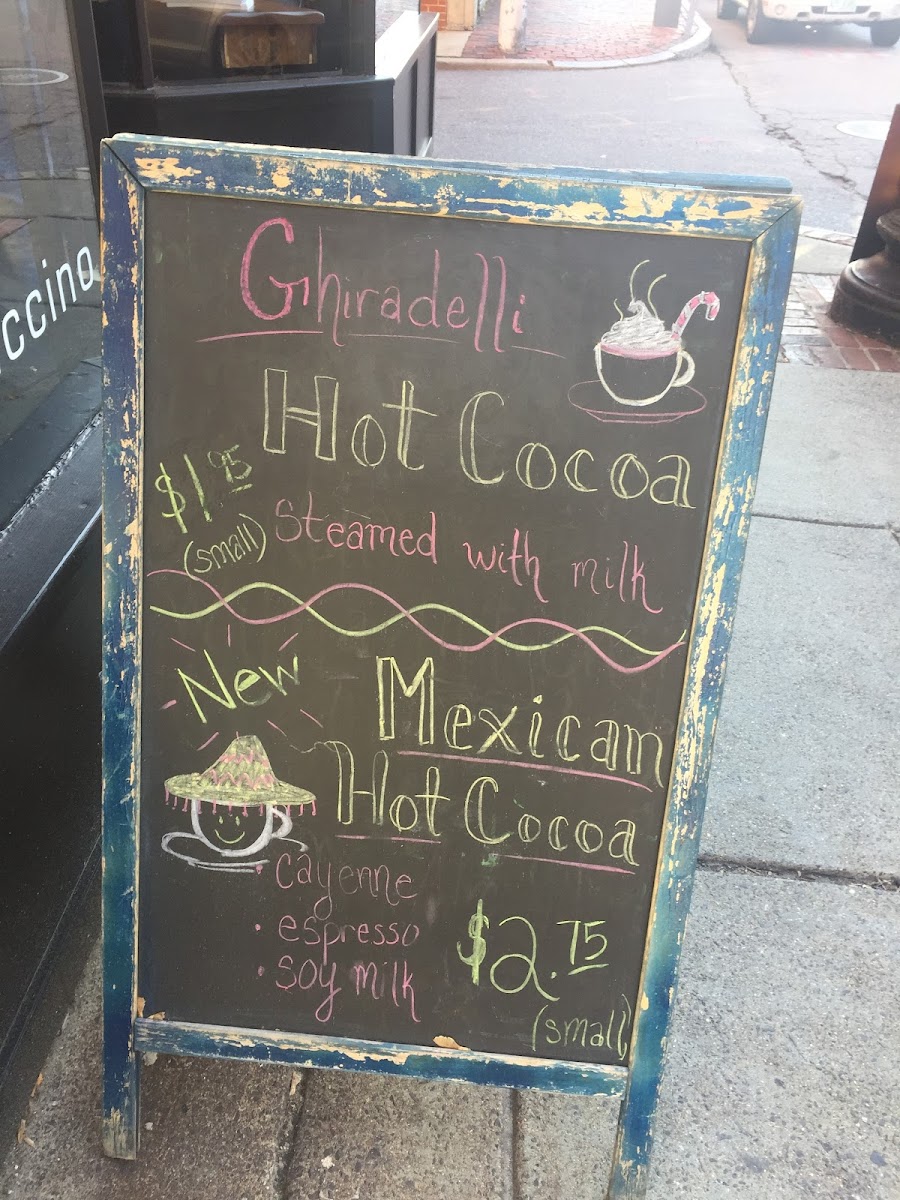 Ghiradelli
Hot Cocoa
$1.95
(small)
Steamed with milk
New
Mexican
Hot Cocoa
• cayenne
• espresso
• soy milk
$2.75
(small)